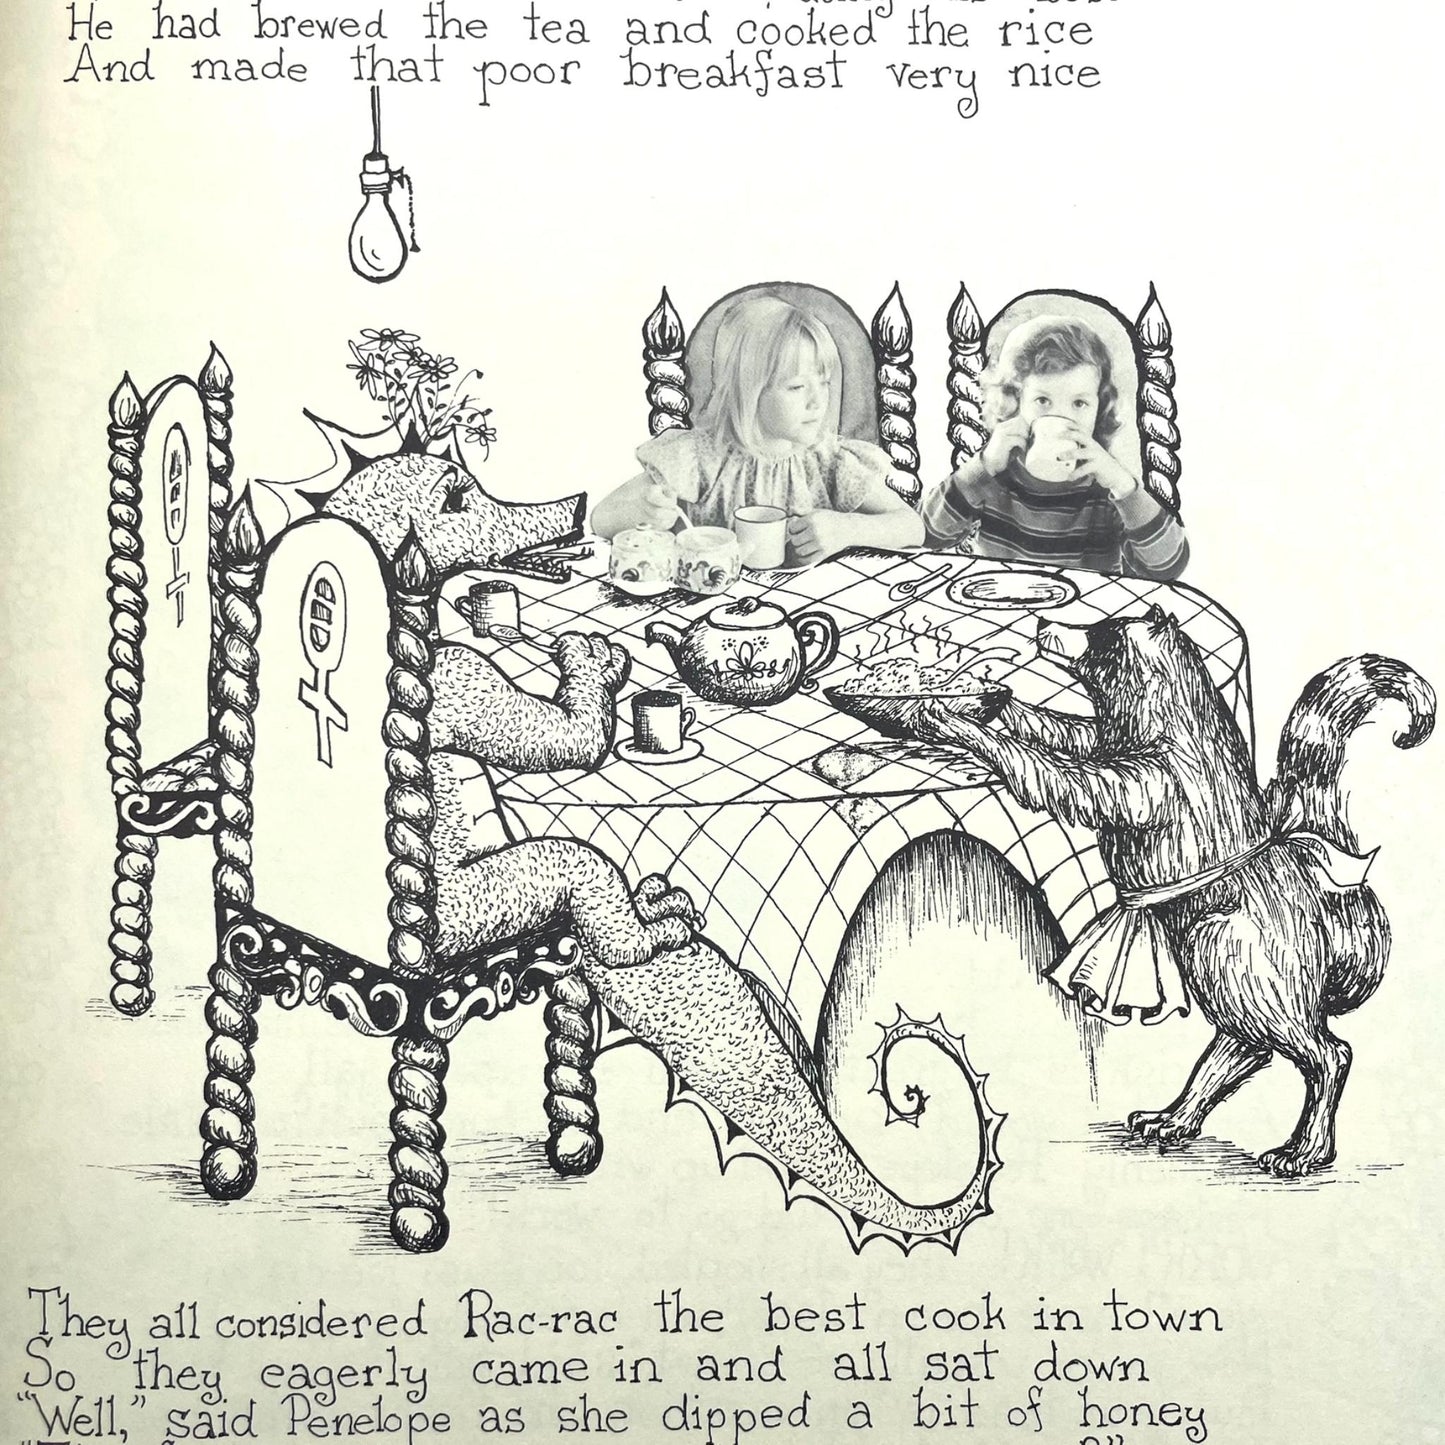 He had brewed the tea and cooked the rice
And made that poor breakfast very nice
They all considered Rac-rac the best cook in town
So they eagerly came in and all sat down
"Well," said Penelope as she dipped a bit of honey